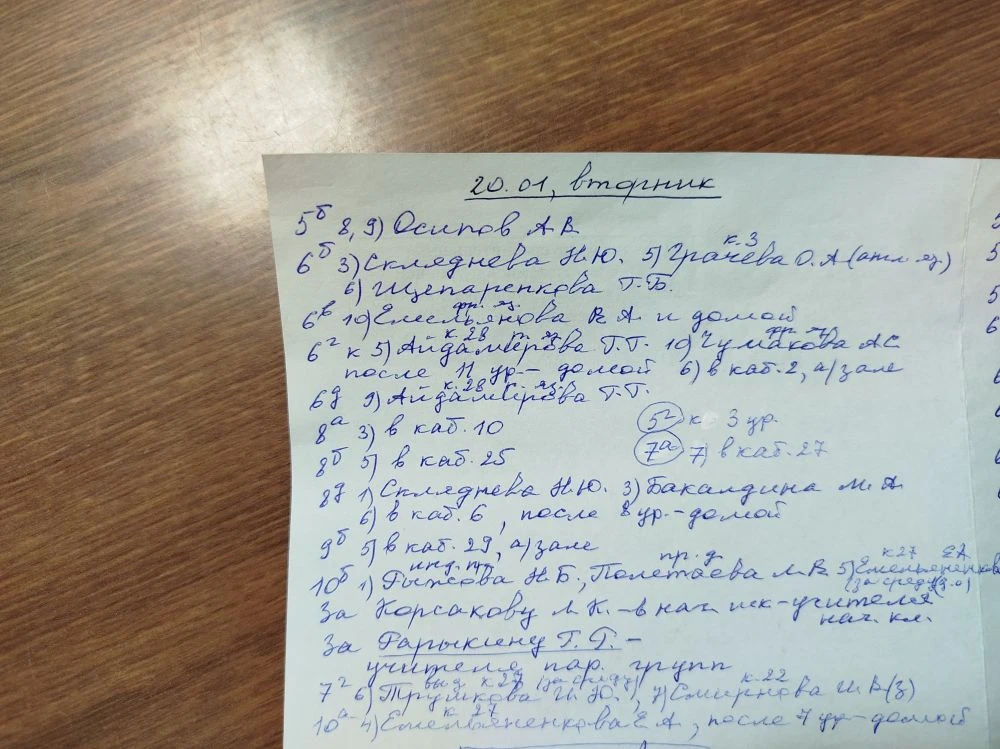 20.01, вторник
5б 8, 9) Осипов А В
6б 3) Скляднева Н.Ю. 5) Грачева О.А (англ. яз.) к.3
6) Щепаренкова Т.Б.
6в 10) Емельянова В А. и домой фр. яз.
6г к 5) Айдамирова Т.Г. к.28 10) Чумакова А С фр. яз
после 11 ур. – домой 6) в каб. 2, а/зале
6д 9) Айдамирова Т.Г. к.28
8а 3) в каб. 10 5г к 3 ур.
8б 5) в каб. 25 7а 7) в каб. 27
8д 1) Скляднева Н.Ю. 3) Бакалдина М. А
6) в каб. 6, после 8 ур. – домой
9б 5) в каб. 29, а/зале
10б 1) Рыжова Н.Б., Полетаева М. В 5) Емельяненкова Е А к27 (за среду)
За Корсакову Л. К. – в нач. шк – учителя
нач. кл.
За Гарыкину Г. Г. –
учителя пар. групп
7г 6) Трушкова И. Ю., к27 (за среду) 7) Смирнова И. В (з) к.22
10а 4) Емельяненкова Е А, к 27 после 7 ур – домой